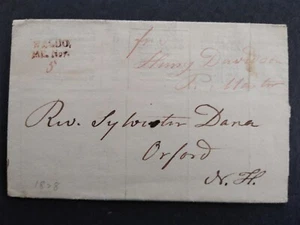 WALDO,
Me. Nov.
5
fr
Henry
Rev. Sylvester Dana
Orford
N. H.